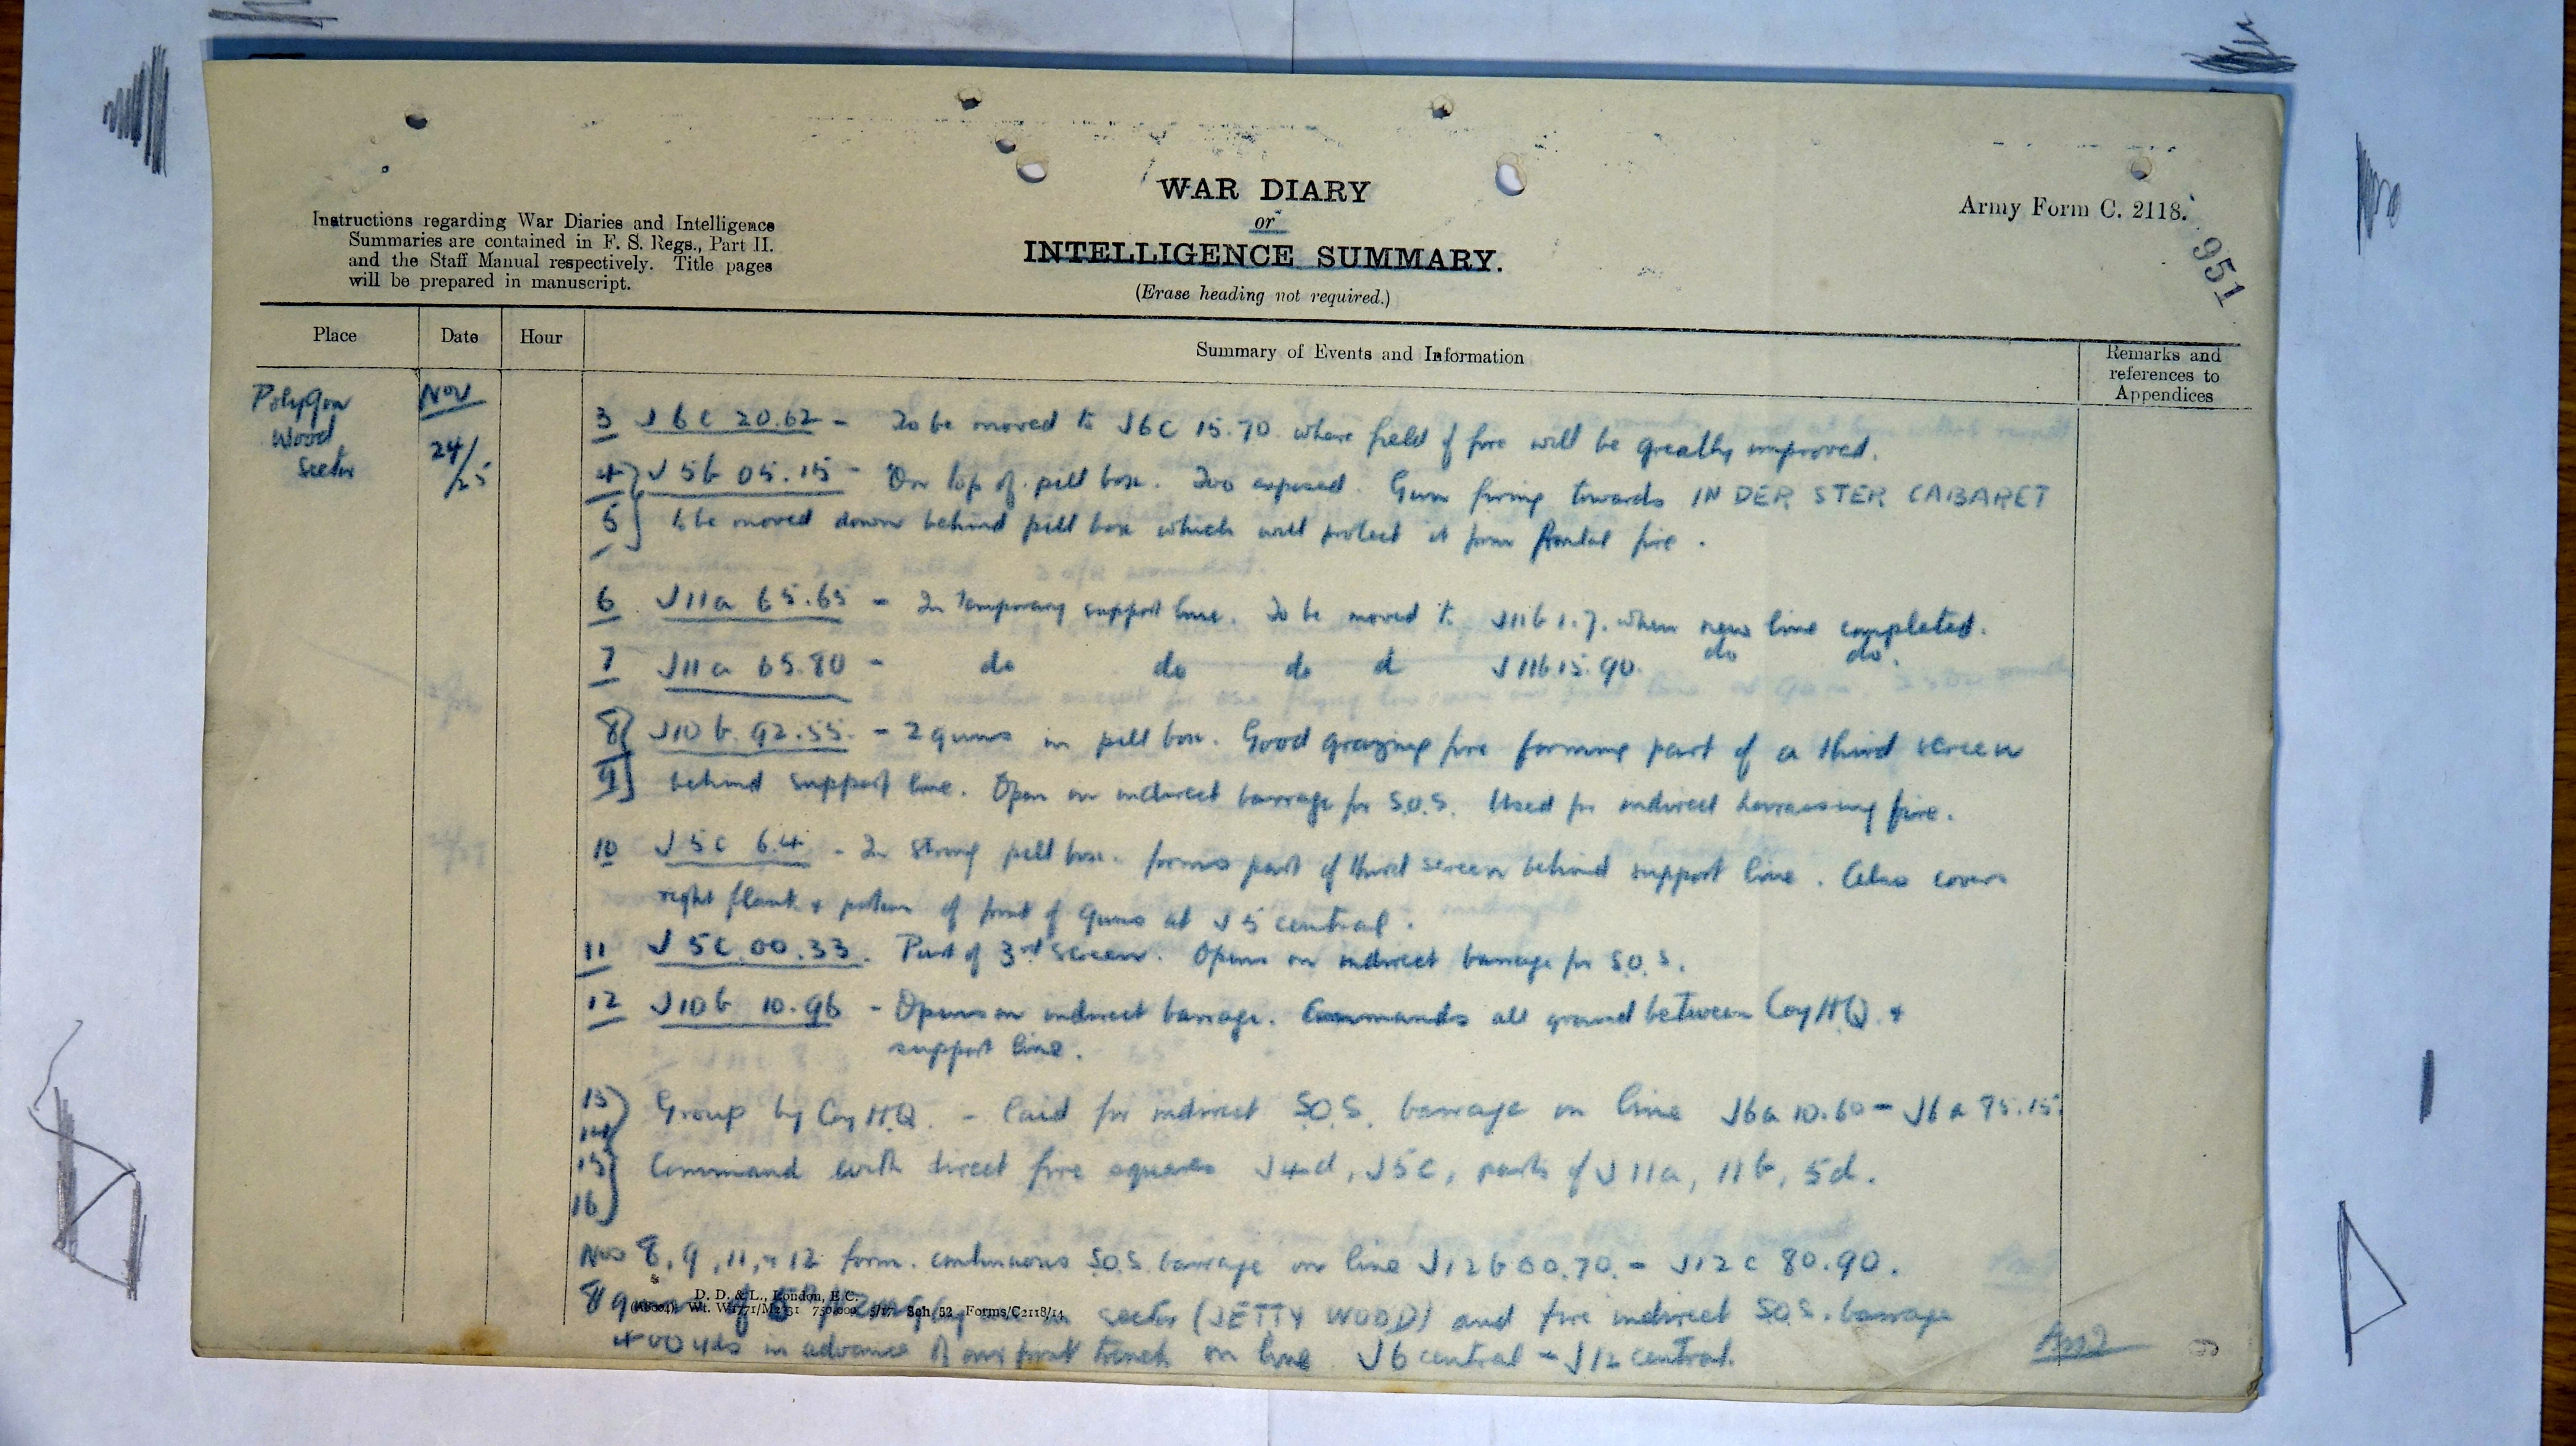 WAR DIARY
or
INTELLIGENCE SUMMARY.
(Erase heading not required.)
Instructions regarding War Diaries and Intelligence
Summaries are contained in F. S. Regs., Part II.
and the Staff Manual respectively. Title pages
will be prepared in manuscript.
Army Form C. 2118.
951
Place
Date
Hour
Summary of Events and Information
Remarks and
references to
Appendices
Polygon
Wood
Sector
Nov
24/25
3 J6c 20.62 - To be moved to J6c 15.70 where field of fire will be greatly improved.
4 J5b 05.15 - On top of pill box. Too exposed. Gun firing towards IN DER STER CABARET
5 to be moved down behind pill box which will protect it from frontal fire.
6 J11a 65.65 - In temporary support line. To be moved to J11b 1.7. when new line completed.
7 J11a 65.80 - do do do d J11b 15.90. do do.
8 J10b 92.55. - 2 guns in pill box. Good grazing fire forming part of a third screen
9 behind support line. Open on indirect barrage for S.O.S. Used for indirect harrassing fire.
10 J5c 6.4 - In strong pill box. forms part of third screen behind support line. Also covers
right flank & of front of guns at J5 central.
11 J5c 00.33. Part of 3rd screen. Opens on indirect barrage for S.O.S.
12 J10b 10.96 - Opens on indirect barrage. Commands all ground between Coy HQ &
support line.
13 Group by Coy H.Q. - laid for indirect S.O.S. barrage on line J6a 10.60 - J6a 95.15.
14
15 Command with direct fire squares J4d, J5c, parts of J11a, 11b, 5d.
16
Nos 8, 9, 11, & 12 form continuous S.O.S. barrage on line J12b 00.70. - J12c 80.90.
8 guns of Coy are in sector (JETTY WOOD) and fire indirect S.O.S. barrage
400 yds in advance of our front trench on line J6 central - J12 central.
D. D. & L., London, E.C.
Wt. W1771/M2131 750,000 5/17 Sch 52 Forms/C2118/14